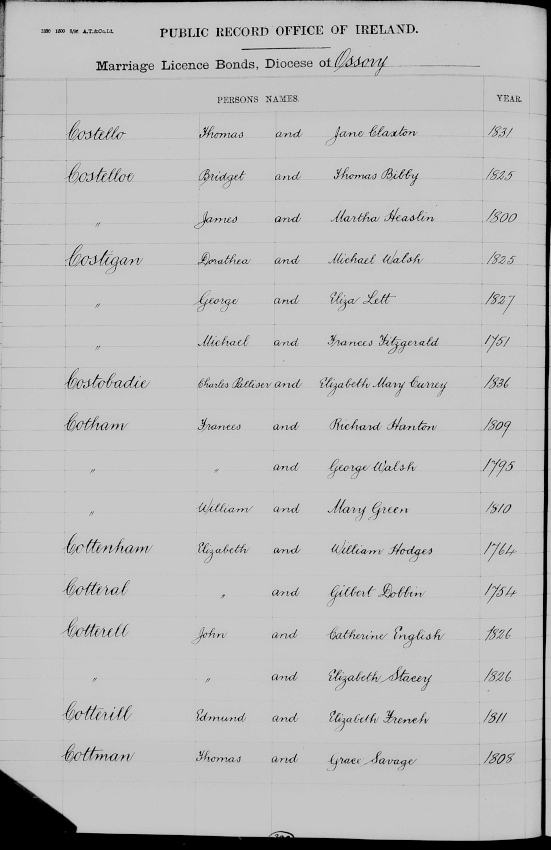 PUBLIC RECORD OFFICE OF IRELAND.
Marriage Licence Bonds, Diocese of Ossory
PERSONS NAMES. YEAR.
Costello Thomas and Jane Claxton 1831
Costelloe Bridget and Thomas Bilby 1825
" James and Martha Heaslin 1800
Costigan Dorathea and Michael Walsh 1825
" George and Eliza Lett 1827
" Michael and Frances Fitzgerald 1751
Costobadie Charles Palliser and Elizabeth Mary Currey 1836
Cotham Frances and Richard Hanton 1809
" " and George Walsh 1795
" William and Mary Green 1810
Cottenham Elizabeth and William Hodges 1764
Cotteral " and Gilbert Dobbin 1754
Cotterell John and Catherine English 1826
" " and Elizabeth Stacey 1826
Cotterill Edmund and Elizabeth French 1811
Cottman Thomas and Grace Savage 1808